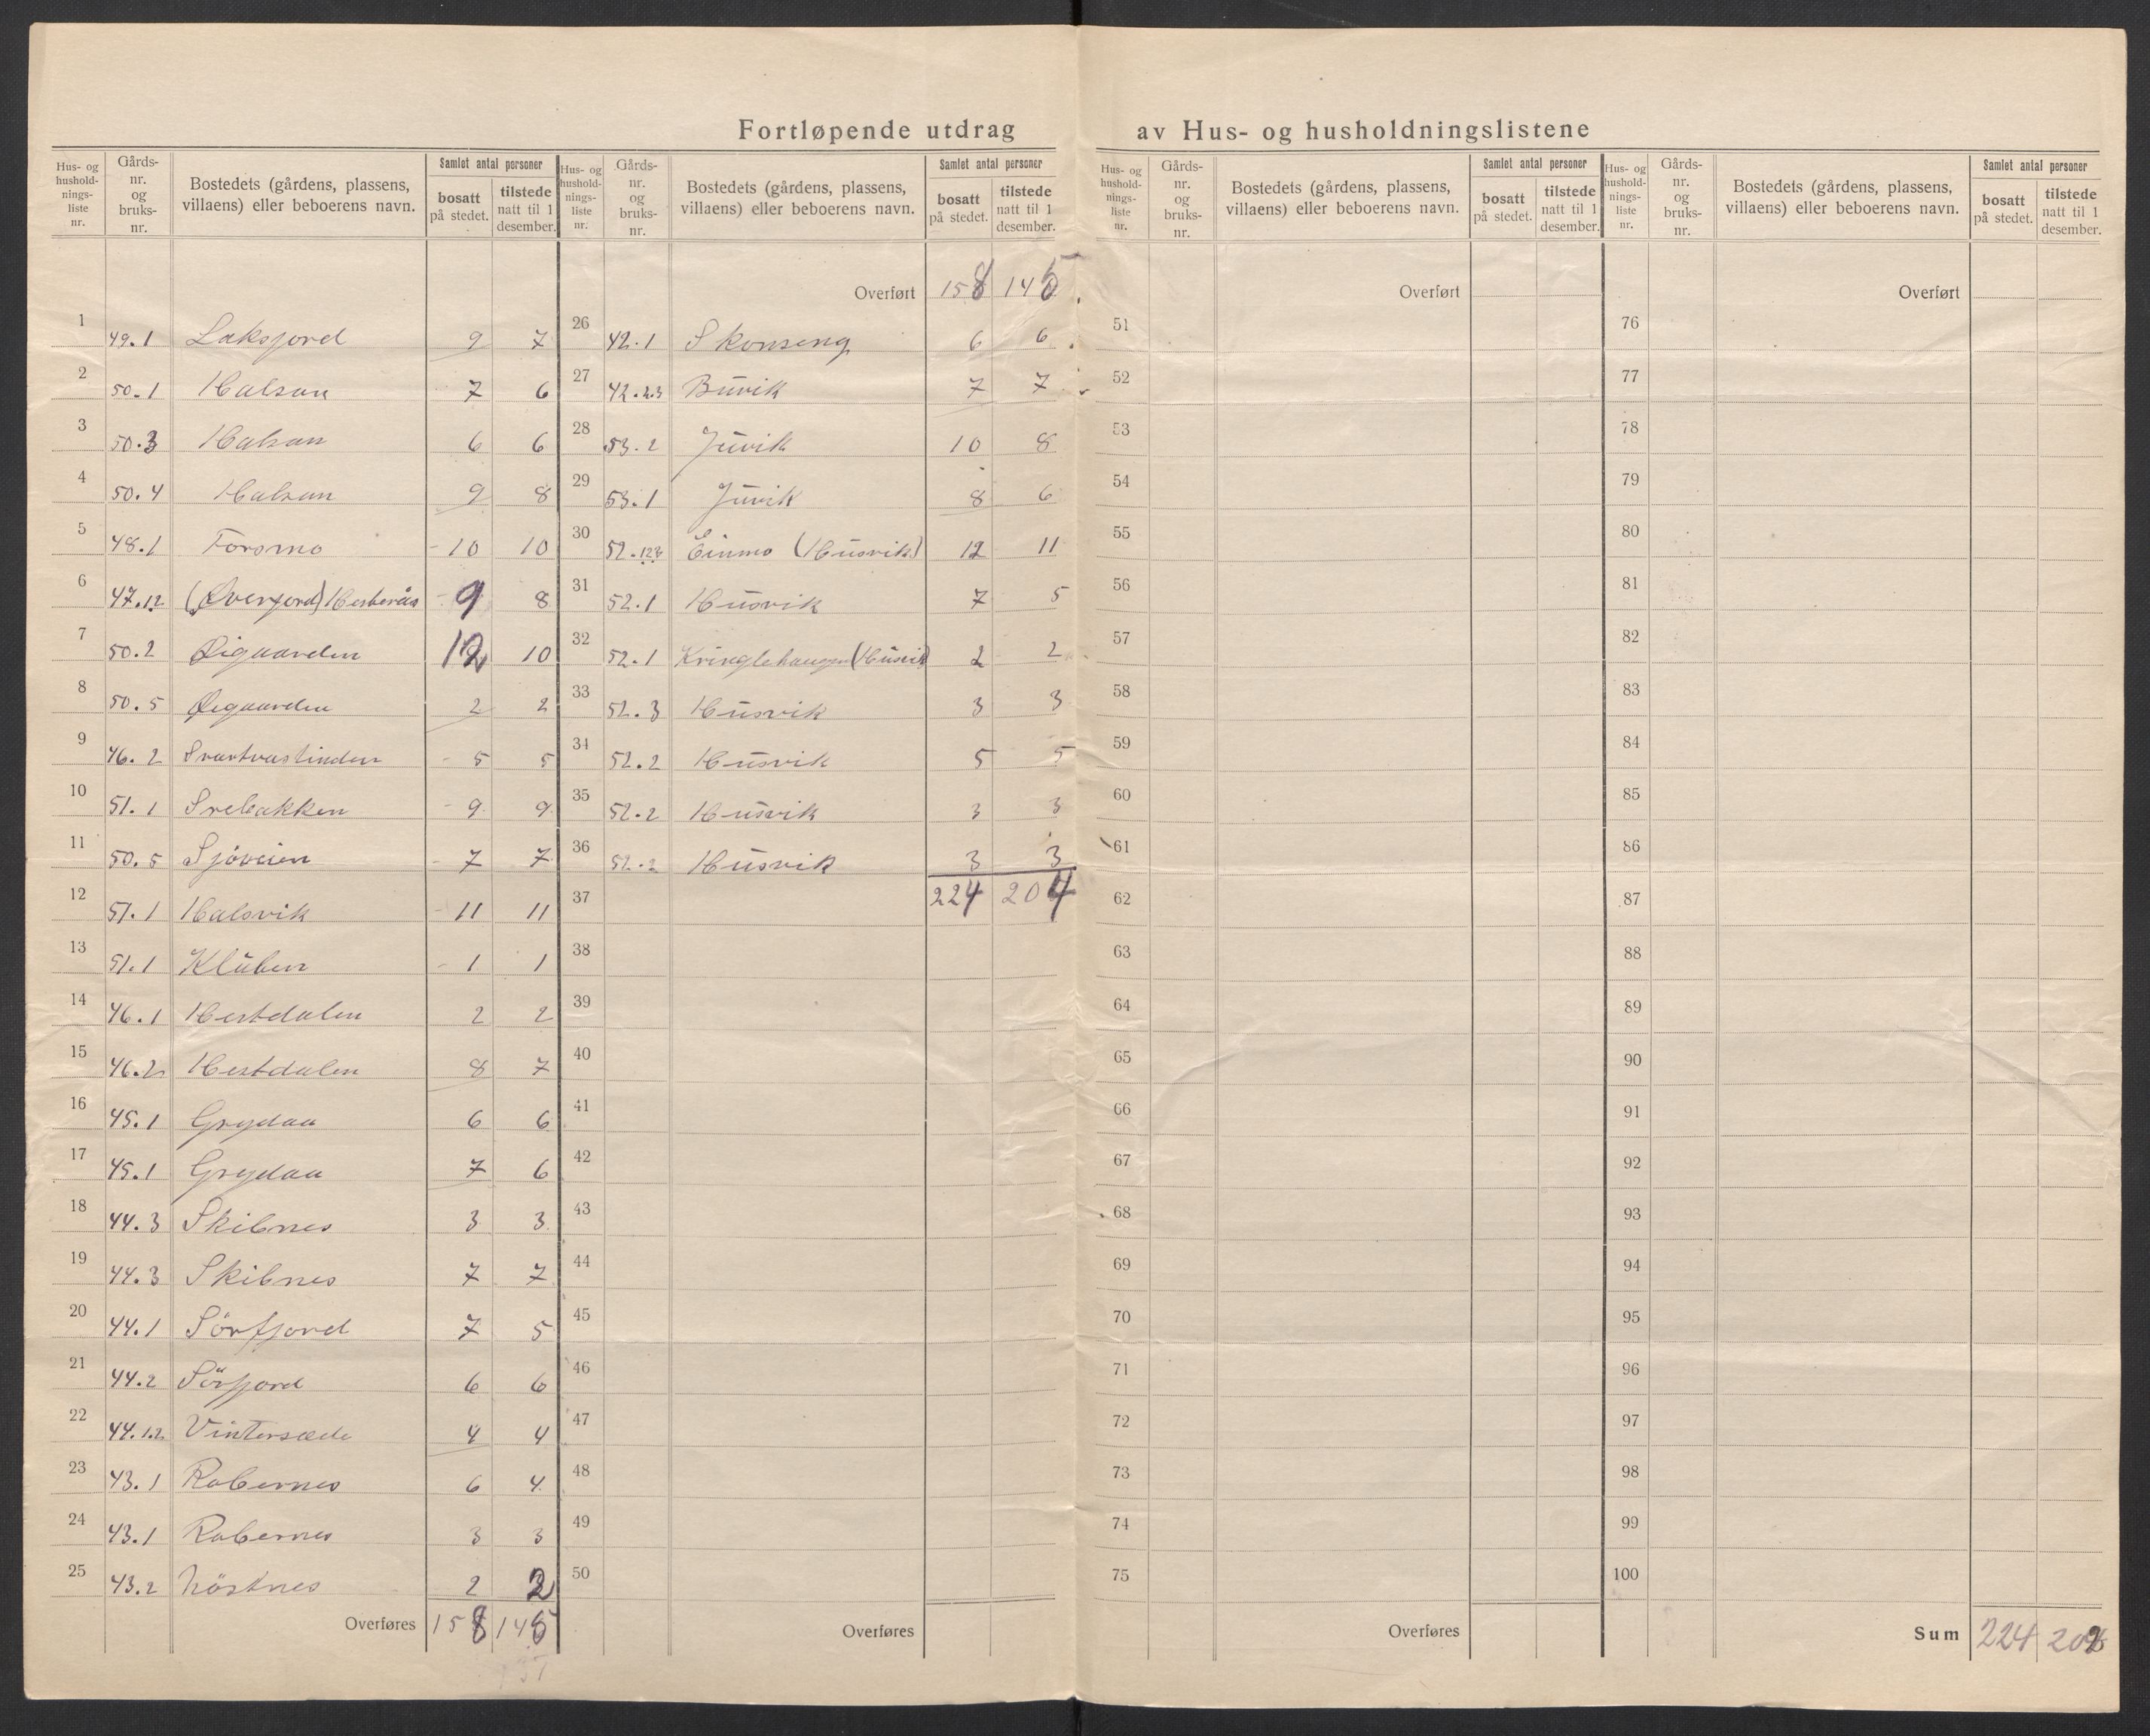 Fortløpende utdrag av Hus- og husholdningslistene
Hus- og hushold- nings- liste nr. | Gårds- nr. og bruks- nr. | Bostedets (gårdens, plassens, villaens) eller beboerens navn. | Samlet antal personer | bosatt på stedet. | tilstede natt til 1 desember.
1 49.1 Laksfjord 9 7
2 50.1 Halsan 7 6
3 50.3 Halsan 6 6
4 50.4 Halsan 9 8
5 48.1 Forsmo 10 10
6 47.12 (Øverfjord) 9 8
7 50.2 Øigaarden 12 10
8 50.5 Øigaarden 2 2
9 46.2 Svartvastinden 5 5
10 51.1 Svebakken 9 9
11 50.5 Sjöveien 7 7
12 51.1 Halsvik 11 11
13 51.1 Kluben 1 1
14 46.1 Hestdalen 2 2
15 46.2 Hestdalen 8 7
16 45.1 Grydaa 6 6
17 45.1 Grydaa 7 6
18 44.3 Skibnes 3 3
19 44.3 Skibnes 7 7
20 44.1 Sörfjord 7 5
21 44.2 Sörfjord 6 6
22 44.1.2 Vintersæde 4 4
23 43.1 Rabernes 6 4
24 43.1 Rabernes 3 3
25 43.2 Nöstnes 2 2
Overføres 158 145
137
Hus- og hushold- nings- liste nr. | Gårds- nr. og bruks- nr. | Bostedets (gårdens, plassens, villaens) eller beboerens navn. | Samlet antal personer | bosatt på stedet. | tilstede natt til 1 desember.
Overført 158 145
26 42.1 Skonseng 6 6
27 42.2.3 Buvik 7 7
28 53.2 Juvik 10 8
29 53.1 Juvik 8 6
30 52.123 Einmo (Husvik) 12 11
31 52.1 Husvik 7 5
32 52.1 Kringlehaugen (Husvik) 2 2
33 52.3 Husvik 3 3
34 52.2 Husvik 5 5
35 52.2 Husvik 3 3
36 52.2 Husvik 3 3
37 224 204
38
39
40
41
42
43
44
45
46
47
48
49
50
Overføres
Hus- og hushold- nings- liste nr. | Gårds- nr. og bruks- nr. | Bostedets (gårdens, plassens, villaens) eller beboerens navn. | Samlet antal personer | bosatt på stedet. | tilstede natt til 1 desember.
Overført
51
52
53
54
55
56
57
58
59
60
61
62
63
64
65
66
67
68
69
70
71
72
73
74
75
Overføres
Hus- og hushold- nings- liste nr. | Gårds- nr. og bruks- nr. | Bostedets (gårdens, plassens, villaens) eller beboerens navn. | Samlet antal personer | bosatt på stedet. | tilstede natt til 1 desember.
Overført
76
77
78
79
80
81
82
83
84
85
86
87
88
89
90
91
92
93
94
95
96
97
98
99
100
Sum 224